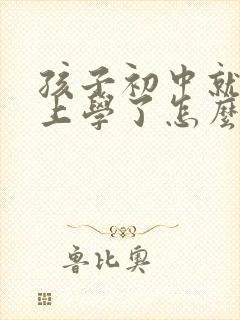 孩子初中就
上學了怎麼
魯比奧